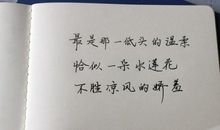 最是那一低头的温柔
恰似一朵水莲花
不胜凉风的娇羞